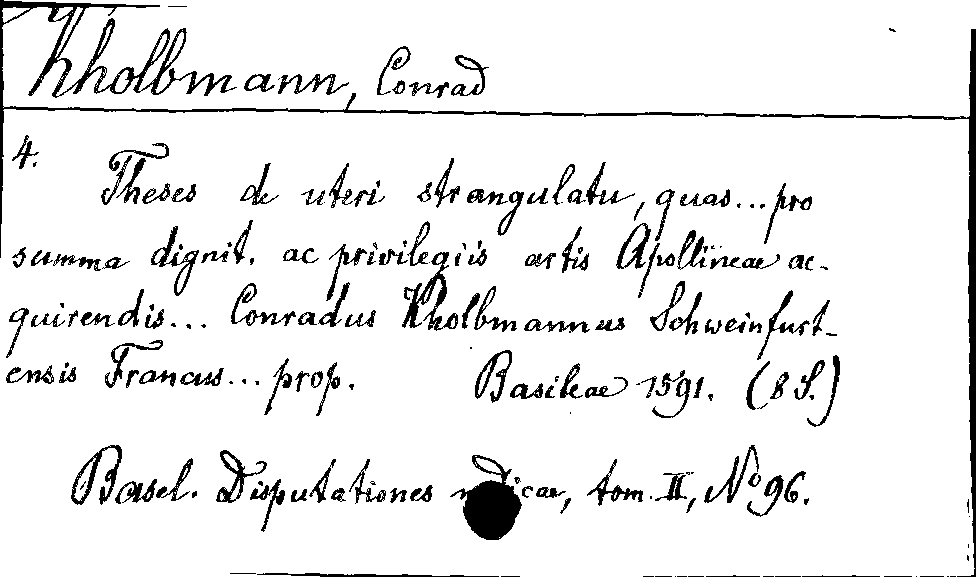 Kholbmann, Conrad
4.
Theses de uteri strangulatu, quas... pro
summa dignit. ac privilegiis artis Apollineae ac-
quirendis... Conradus Kholbmannus Schweinfurt-
ensis Francus... prop. Basileae 1591. (8 S.)
Basel. Disputationes medicae, tom. II, No 96.